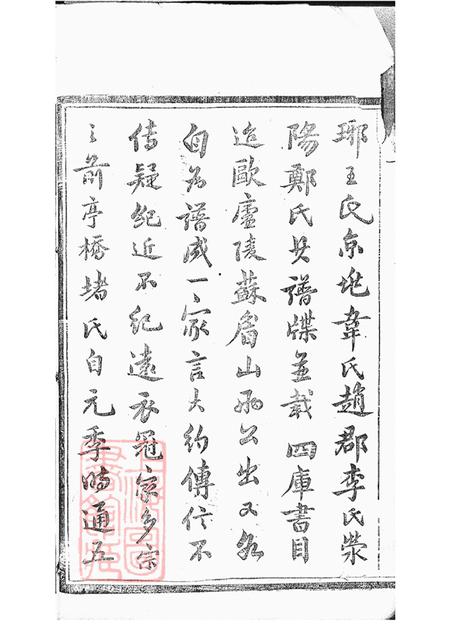 瑯王氏京兆韋氏趙郡李氏滎
陽鄭氏其譜牒並載四庫書目
迨歐廬陵蘇眉山兩公出又各
自為譜成一家言大約傳信不
傳疑紀近不紀遠衣冠家多宗
之前亭橋堵氏自元季時通五